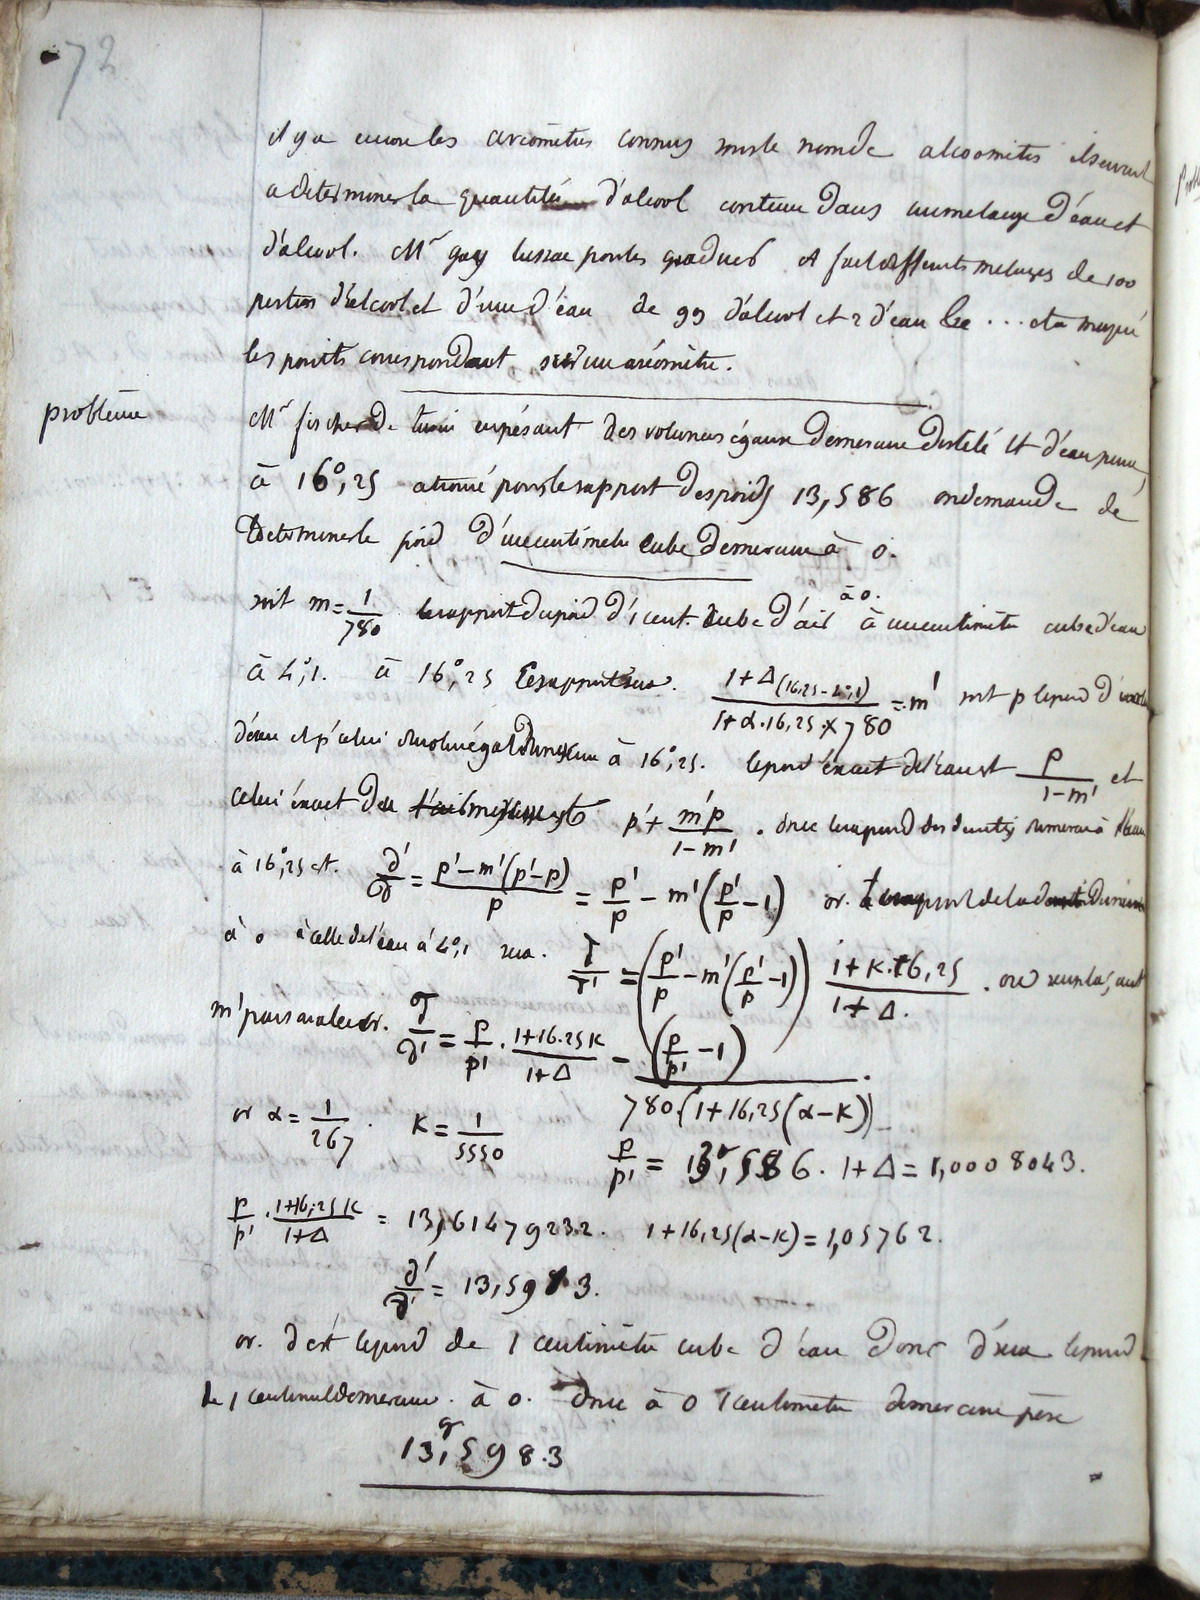 72
il y a encore les areomètres connus sous le nom de alcoomètes ils servent
a determiner la quantité d'alcool contenu dans un melange d'eau et
d'alcool. Mr gay lussac pour les graduer A fait differents melanges de 100
parties d'alcool et d'une d'eau de 99 d'alcool et 2 d'eau &c ... et a marqué
les points correspondant sur un aréomètre.
problème
Mr fischer de en pésant des volumes égaux de mercure distilé et d'eau pure,
à 16°,25 a trouvé pour le rapport des poids 13,586 on demande de
Determiner le poid d'un centimetre cube de mercure à 0.
soit m = 1/780 le rapport du poid d'1 cent. cube d'air à 0. à un centimetre cube d'eau
à 4°,1. à 16°,25 le rapport sera. 1+Δ(16,25-4°,1) / 1+α.16,25 × 780 = m' soit p le poid d'
d'eau et p' celui d'un volume égal de mercure à 16°,25. le poid éxact de l'eau est p/1-m' et
celui éxact du p' + m'p/1-m' . donc le rapport des densités du mercure à l'eau
à 16°,25 et. δ'/δ = p'-m'(p'-p)/p = p'/p - m'(p'/p -1) or. le rapport de la densité du mercure
à 0 à celle de l'eau à 4°,1 sera. δ/δ' = (p'/p - m'(p'/p -1)) 1+K.16,25/1+Δ. ou remplaçant
m' par sa valeur. δ/δ' = p/p' . 1+16.25K/1+Δ - (p/p' -1) / 780(1+16,25(α-K))
or α = 1/267 . K = 1/5550
p/p' = 13,586. 1+Δ = 1,0008043.
p/p' . 1+16,25K/1+Δ = 13,61479232. 1+16,25(α-K) = 1,05762.
δ'/δ = 13,5983.
or. δ est le poid de 1 centimètre cube d'eau donc δ' sera le poid
de 1 centimet de mercure. à 0. donc à 0 1 centimètre de mercure pèse
13,gr5983